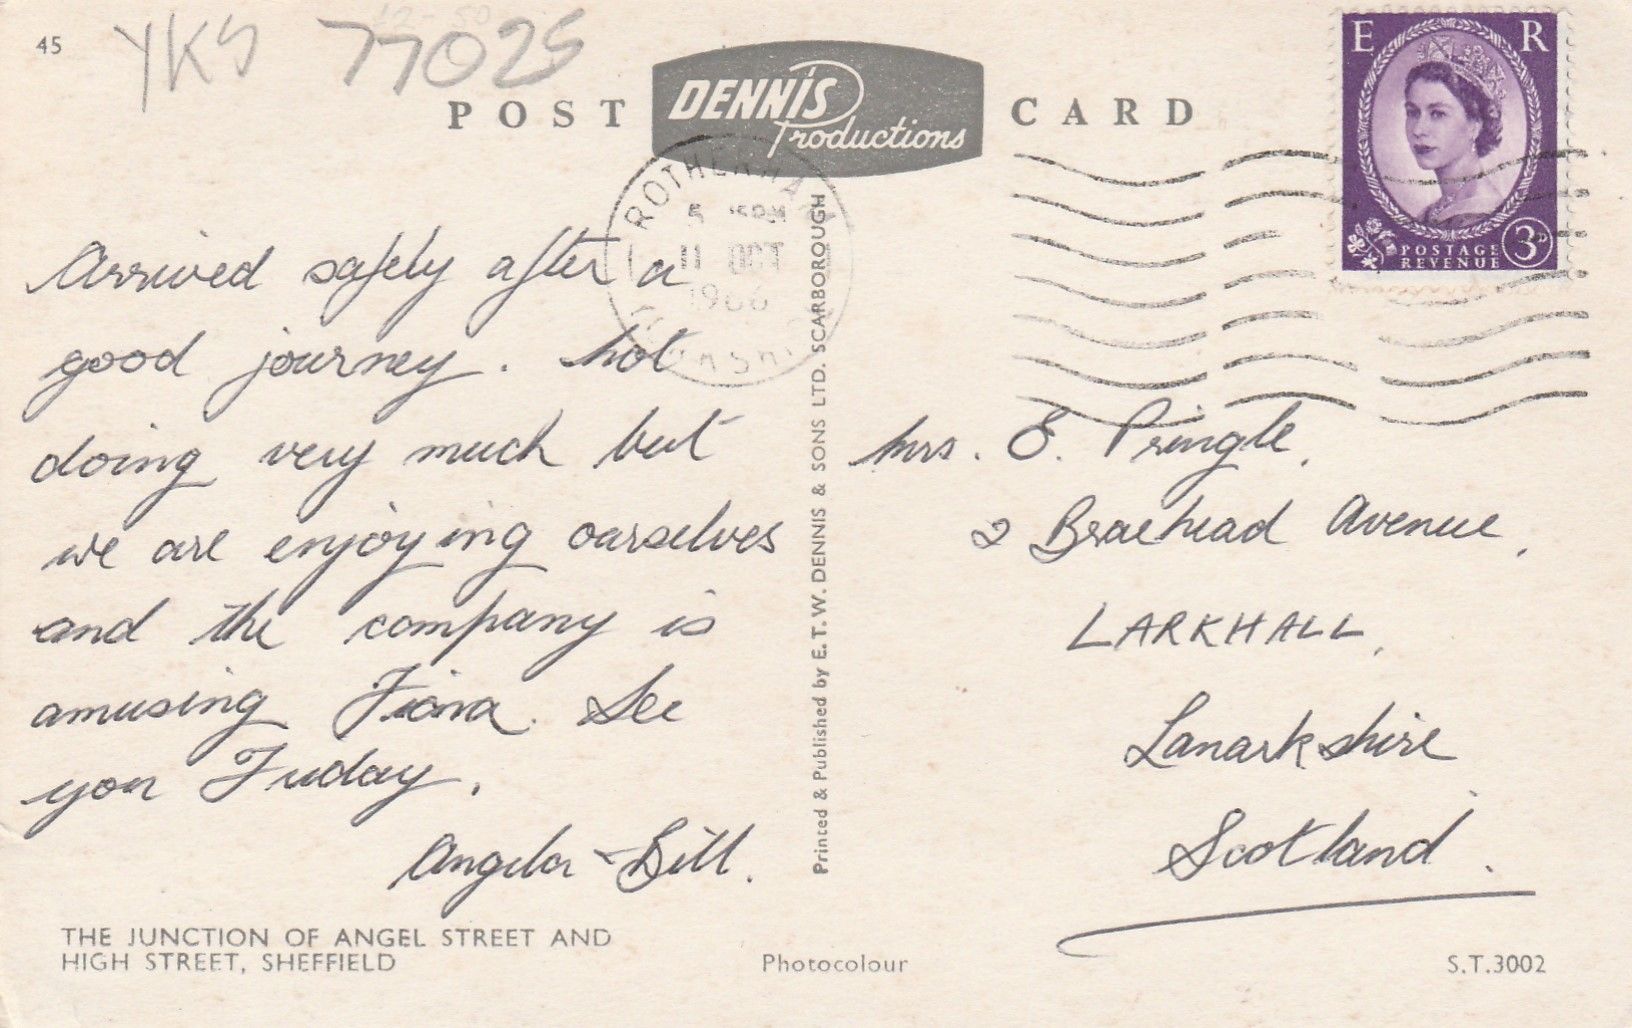 45
YKS 77025
£2-50
POST CARD
DENNIS
Productions
E R
POSTAGE
REVENUE
3D
ROTHERHAM
11 OCT
1966
YORKSHIRE
Arrived safely after a
good journey. Not
doing very much but
we are enjoying ourselves
and the company is
amusing Fiona. See
you Friday.
Angela & Bill.
Printed & Published by E. T. W. DENNIS & SONS LTD. SCARBOROUGH
Mrs. E. Pringle,
2 Braehead Avenue,
LARKHALL,
Lanarkshire
Scotland.
THE JUNCTION OF ANGEL STREET AND
HIGH STREET, SHEFFIELD
Photocolour
S.T.3002